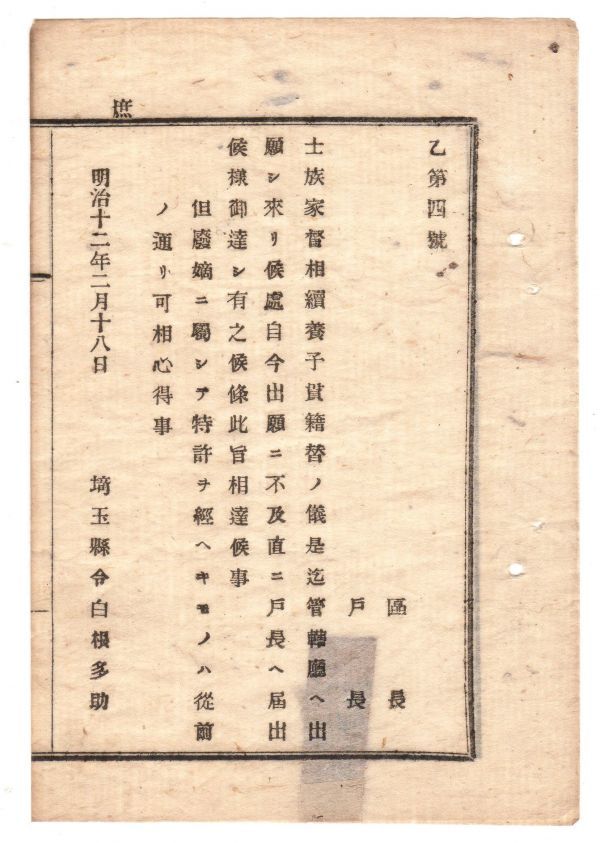 庶
乙第四號
區長
戸長
士族家督相續養子貫籍替ノ儀是迄管轄廳ヘ出
願シ來リ候處自今出願ニ不及直ニ戸長ヘ屆出
候樣御達シ有之候條此旨相達候事
但廢嫡ニ屬シテ特許ヲ經ヘキモノハ從前
ノ通リ可相心得事
明治十二年二月十八日
埼玉縣令白根多助